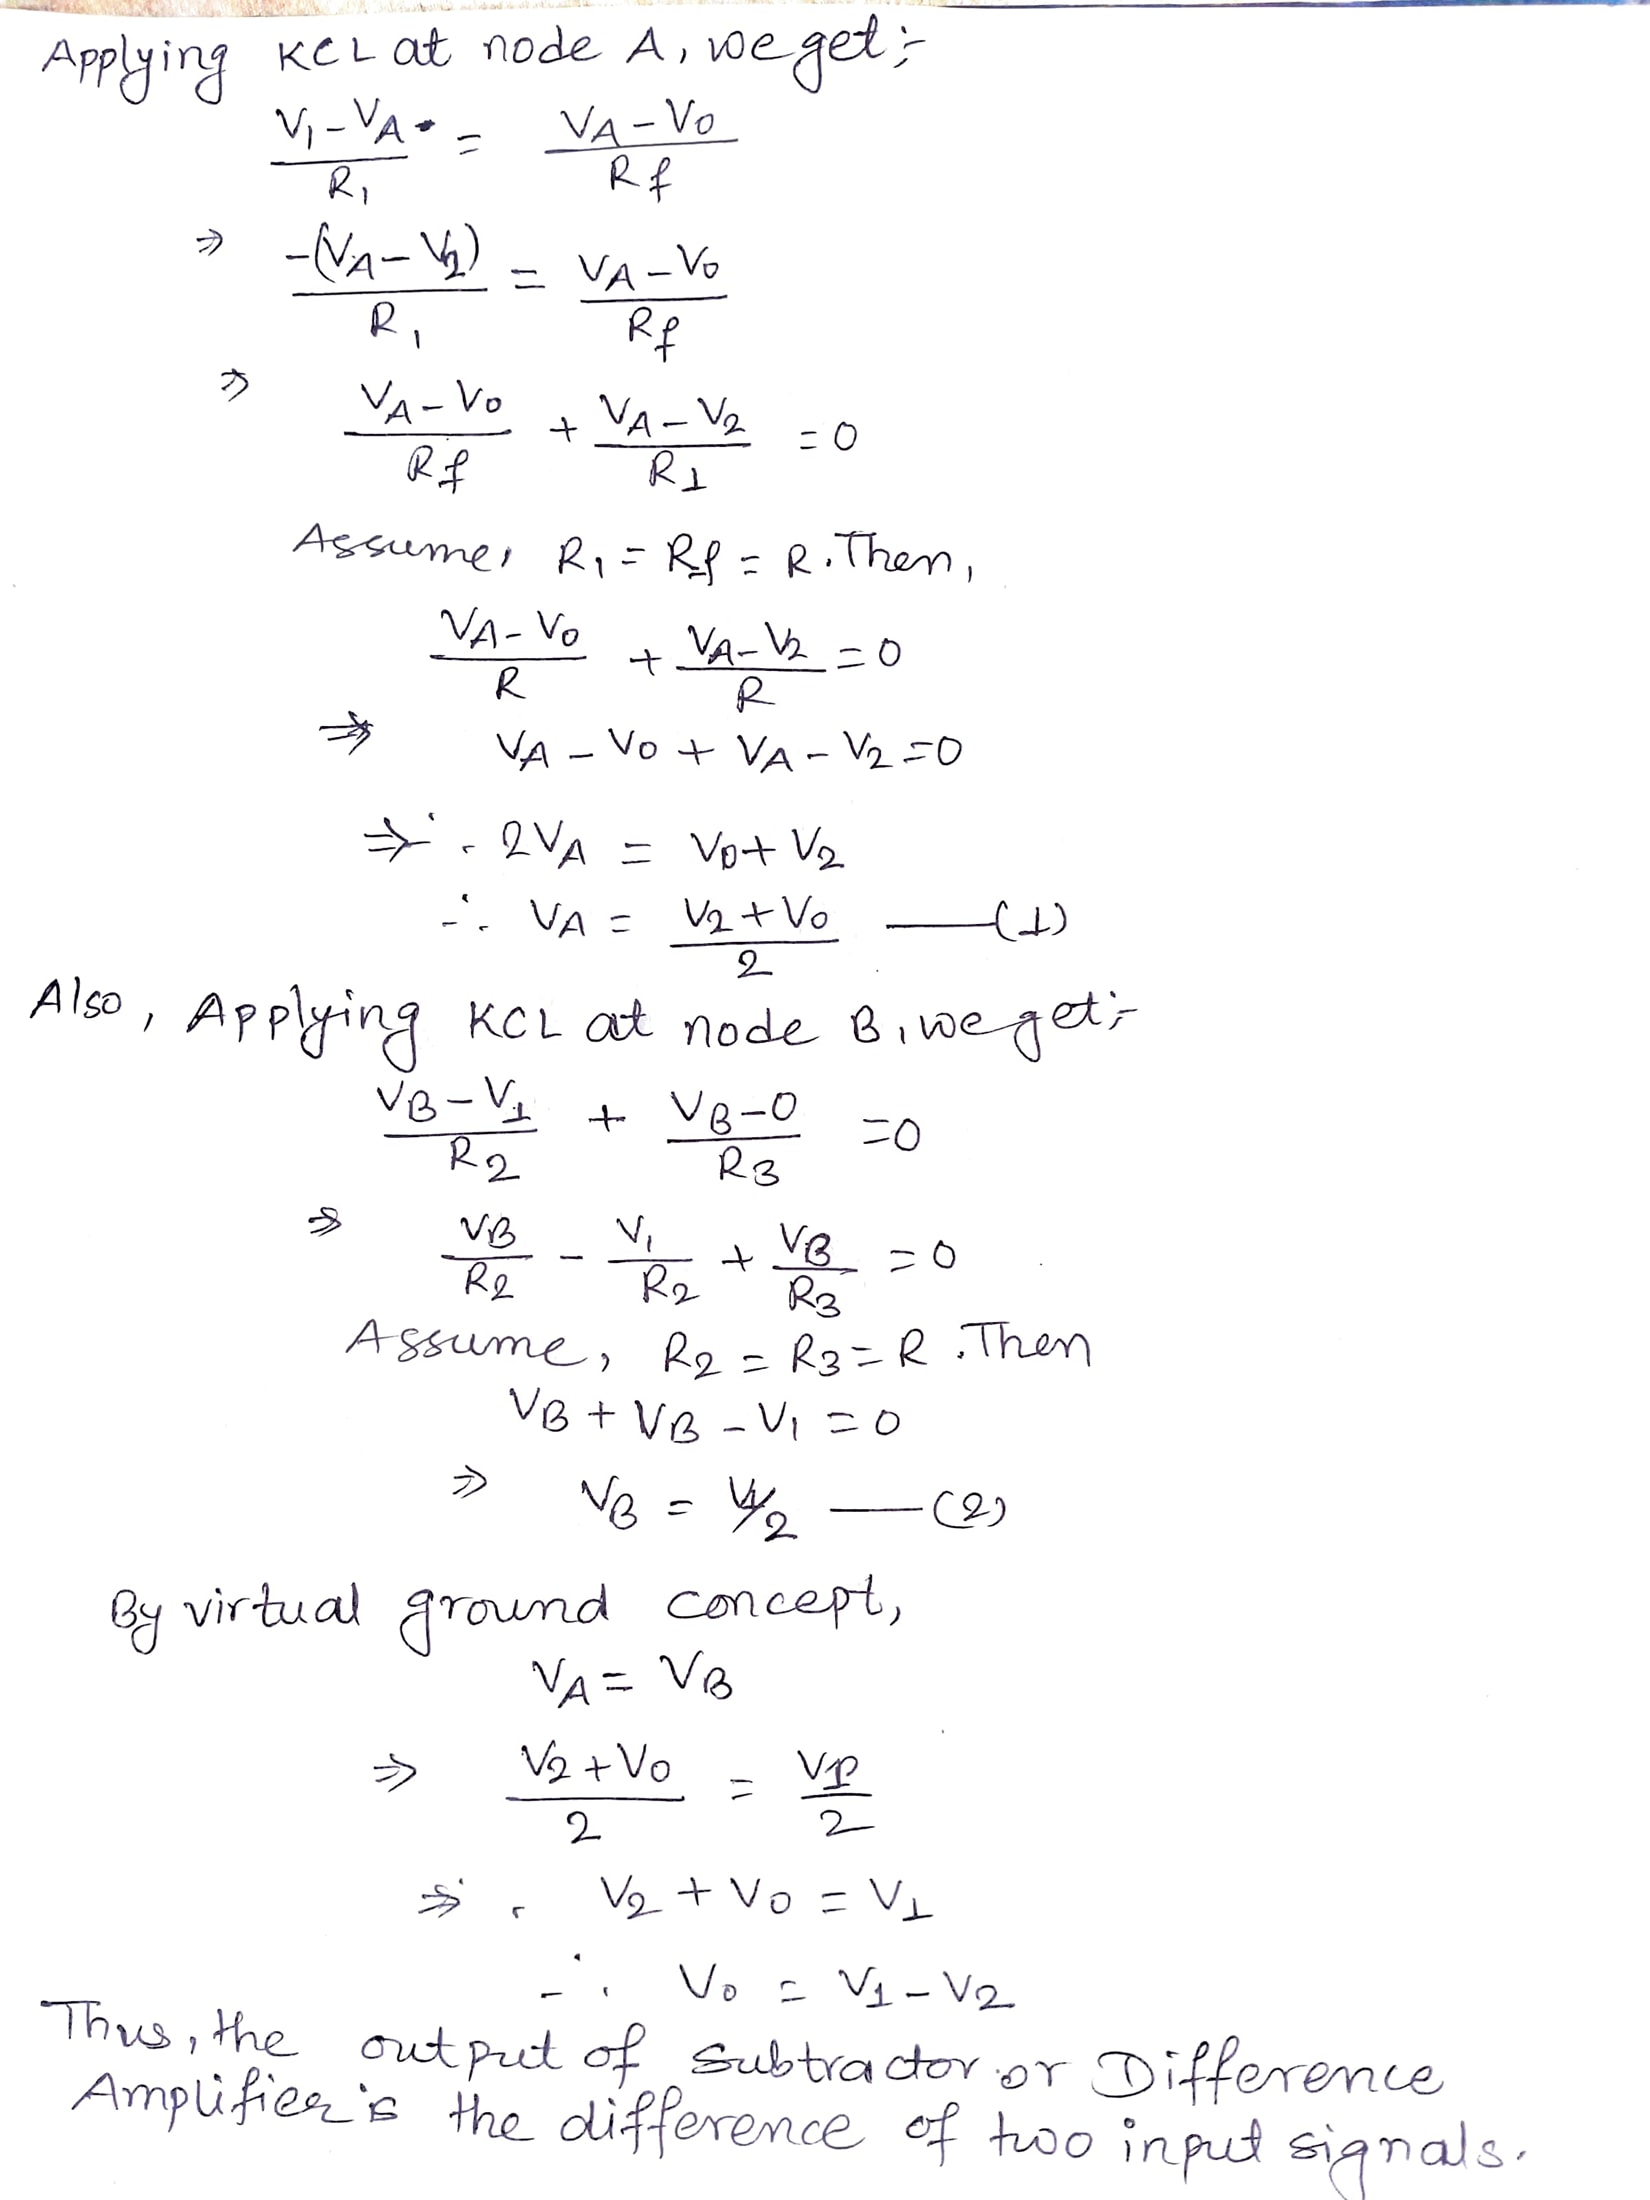 Applying KCL at node A, we get:-
V1-VA / R1 = VA-V0 / Rf
⇒ -(VA-V2) / R1 = VA-V0 / Rf
⇒ VA-V0 / Rf + VA-V2 / R1 = 0
Assume, R1 = Rf = R. Then,
VA-V0 / R + VA-V2 / R = 0
⇒ VA - V0 + VA - V2 = 0
⇒ 2VA = V0 + V2
∴ VA = V2 + V0 / 2 —(1)
Also, Applying KCL at node B, we get:-
VB-V1 / R2 + VB-0 / R3 = 0
⇒ VB / R2 - V1 / R2 + VB / R3 = 0
Assume, R2 = R3 = R. Then
VB + VB - V1 = 0
⇒ VB = V1/2 —(2)
By virtual ground concept,
VA = VB
⇒ V2 + V0 / 2 = V1 / 2
⇒ V2 + V0 = V1
∴ V0 = V1 - V2
Thus, the output of Subtractor or Difference
Amplifier is the difference of two input signals.